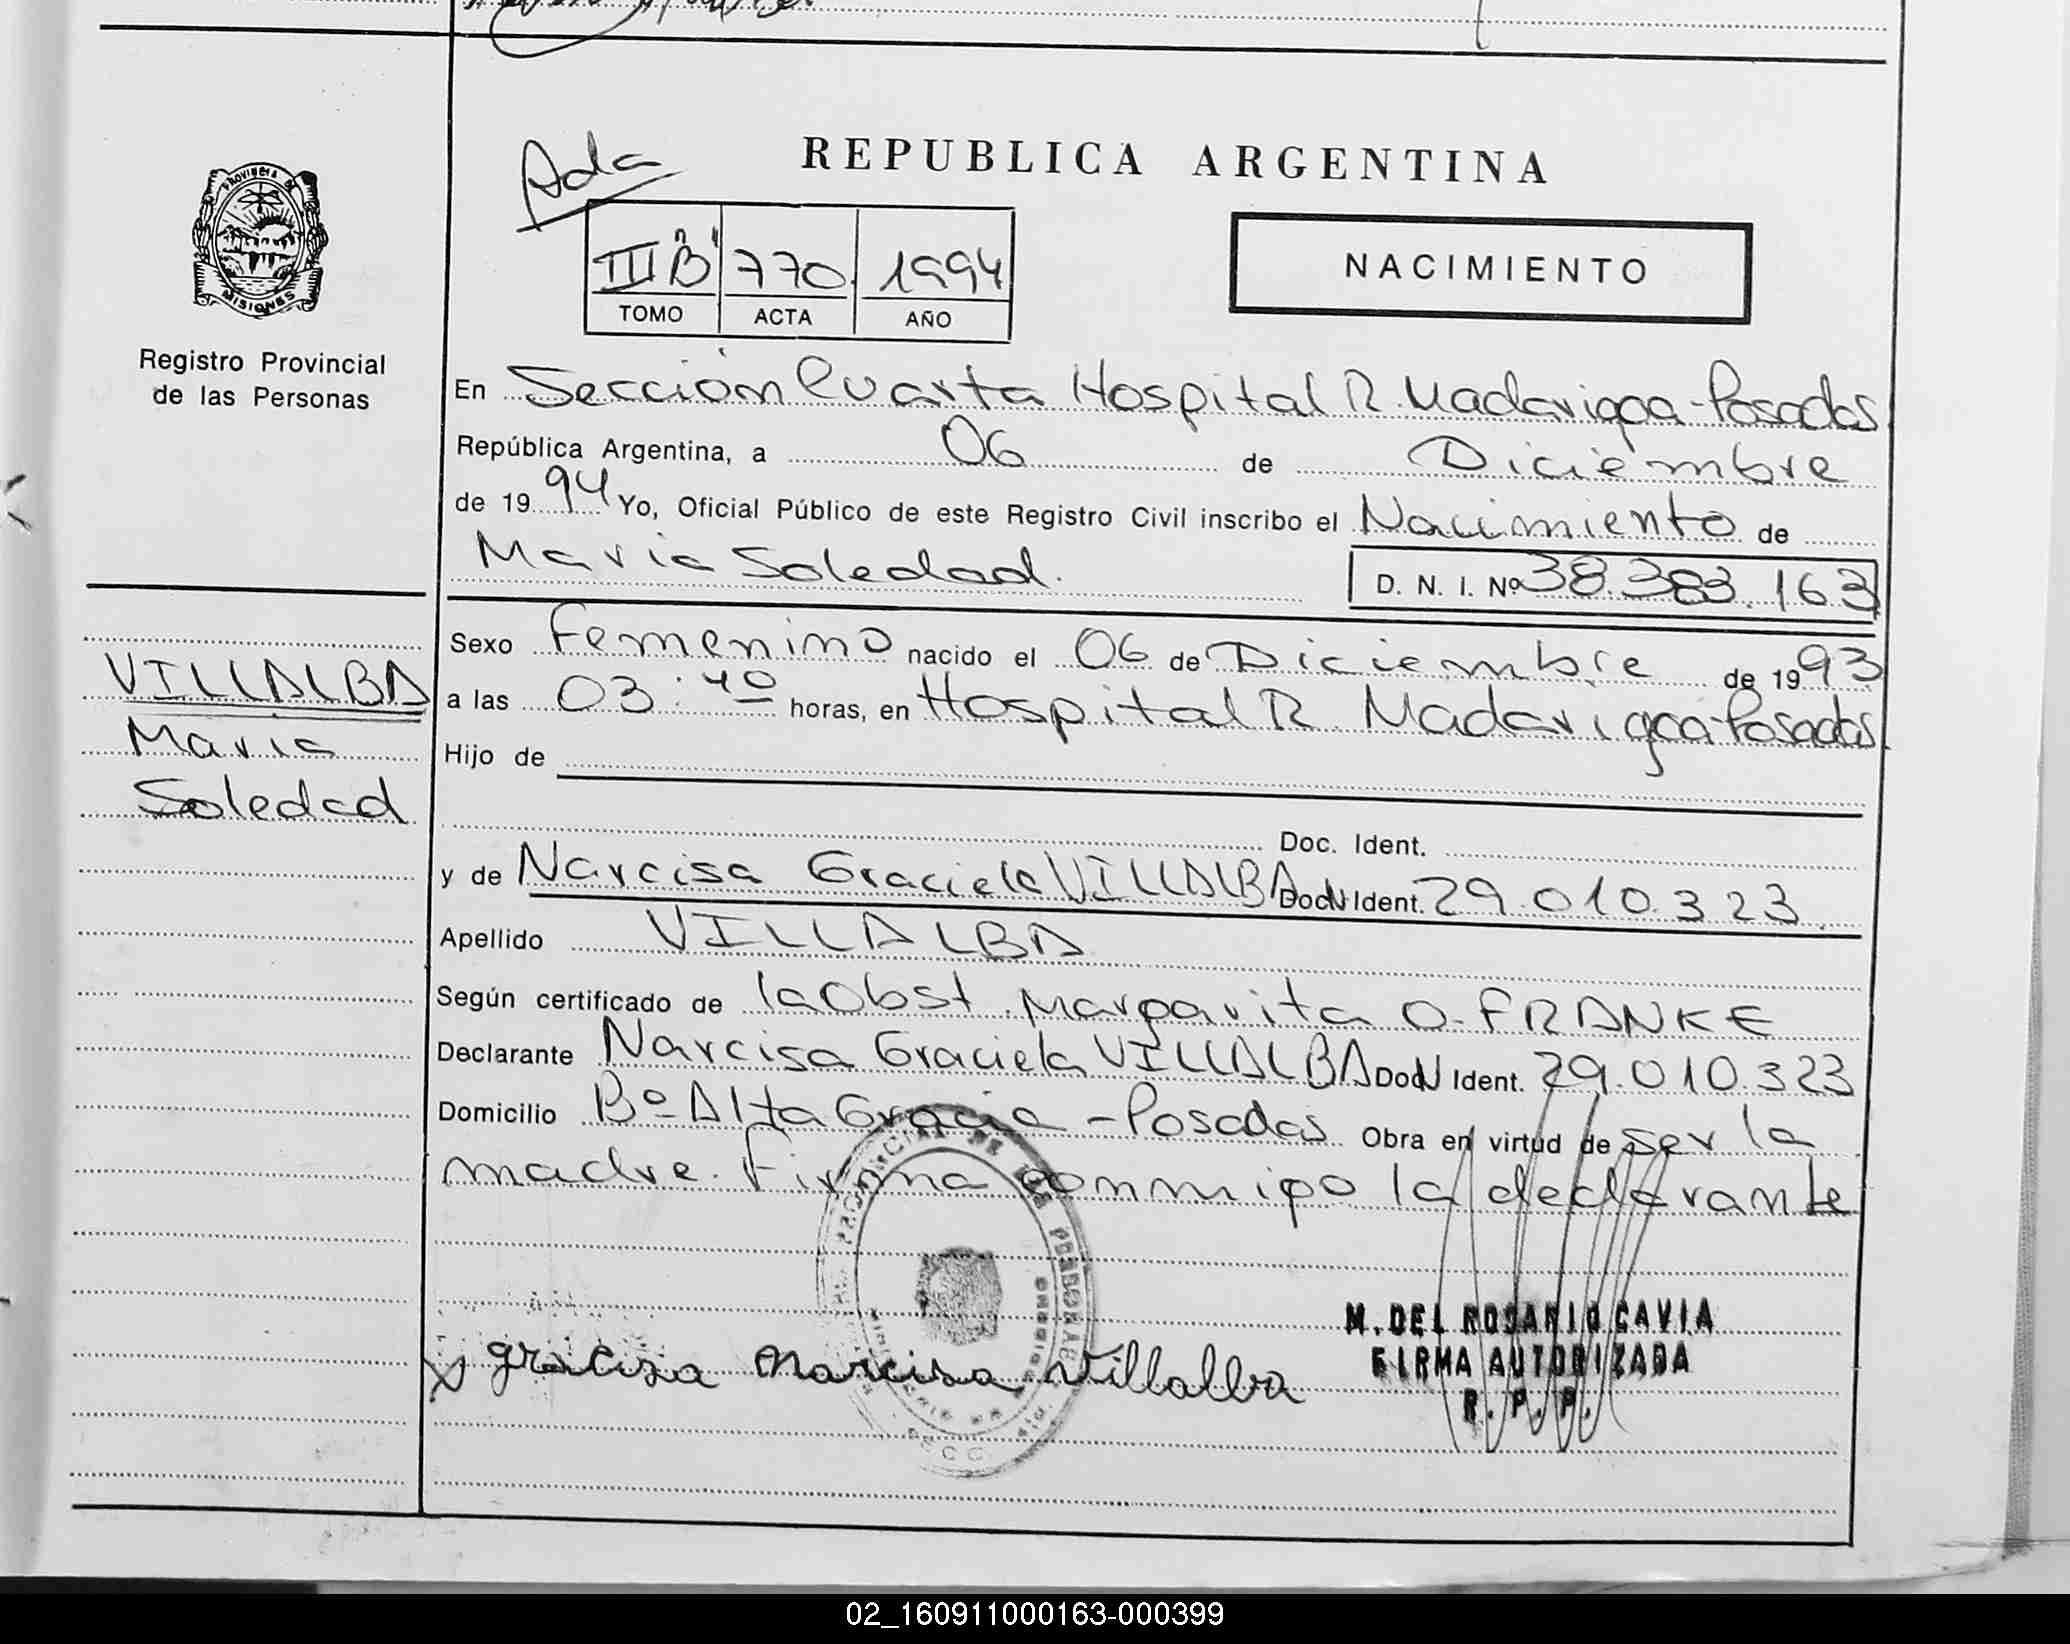 Ada
REPUBLICA ARGENTINA
III "B" 770 1994
TOMO ACTA AÑO
NACIMIENTO
PROVINCIA DE
MISIONES
Registro Provincial
de las Personas
En Sección Cuarta Hospital R. Madariaga-Posadas
República Argentina, a 06 de Diciembre
de 1994 Yo, Oficial Público de este Registro Civil inscribo el Nacimiento de
Maria Soledad.
D. N. I. Nº 38.383.163
Sexo Femenino nacido el 06 de Diciembre de 1993
a las 03:40 horas, en Hospital R. Madariaga-Posadas.
Hijo de
Doc. Ident.
y de Narcisa Graciela VILLALBA Doc. Ident. 29.010.323
Apellido VILLALBA
Según certificado de la Obst. Margarita O. FRANKE
Declarante Narcisa Graciela VILLALBA Doc. Ident. 29.010.323
Domicilio Bº Alta Gracia - Posadas Obra en virtud de ser la
madre. Firma conmigo la declarante
VILLALBA
Maria
Soledad
x graciza Narcisa Villalba
M. DEL ROSARIO GAVIA
FIRMA AUTORIZADA
R. P. P.
02_160911000163-000399